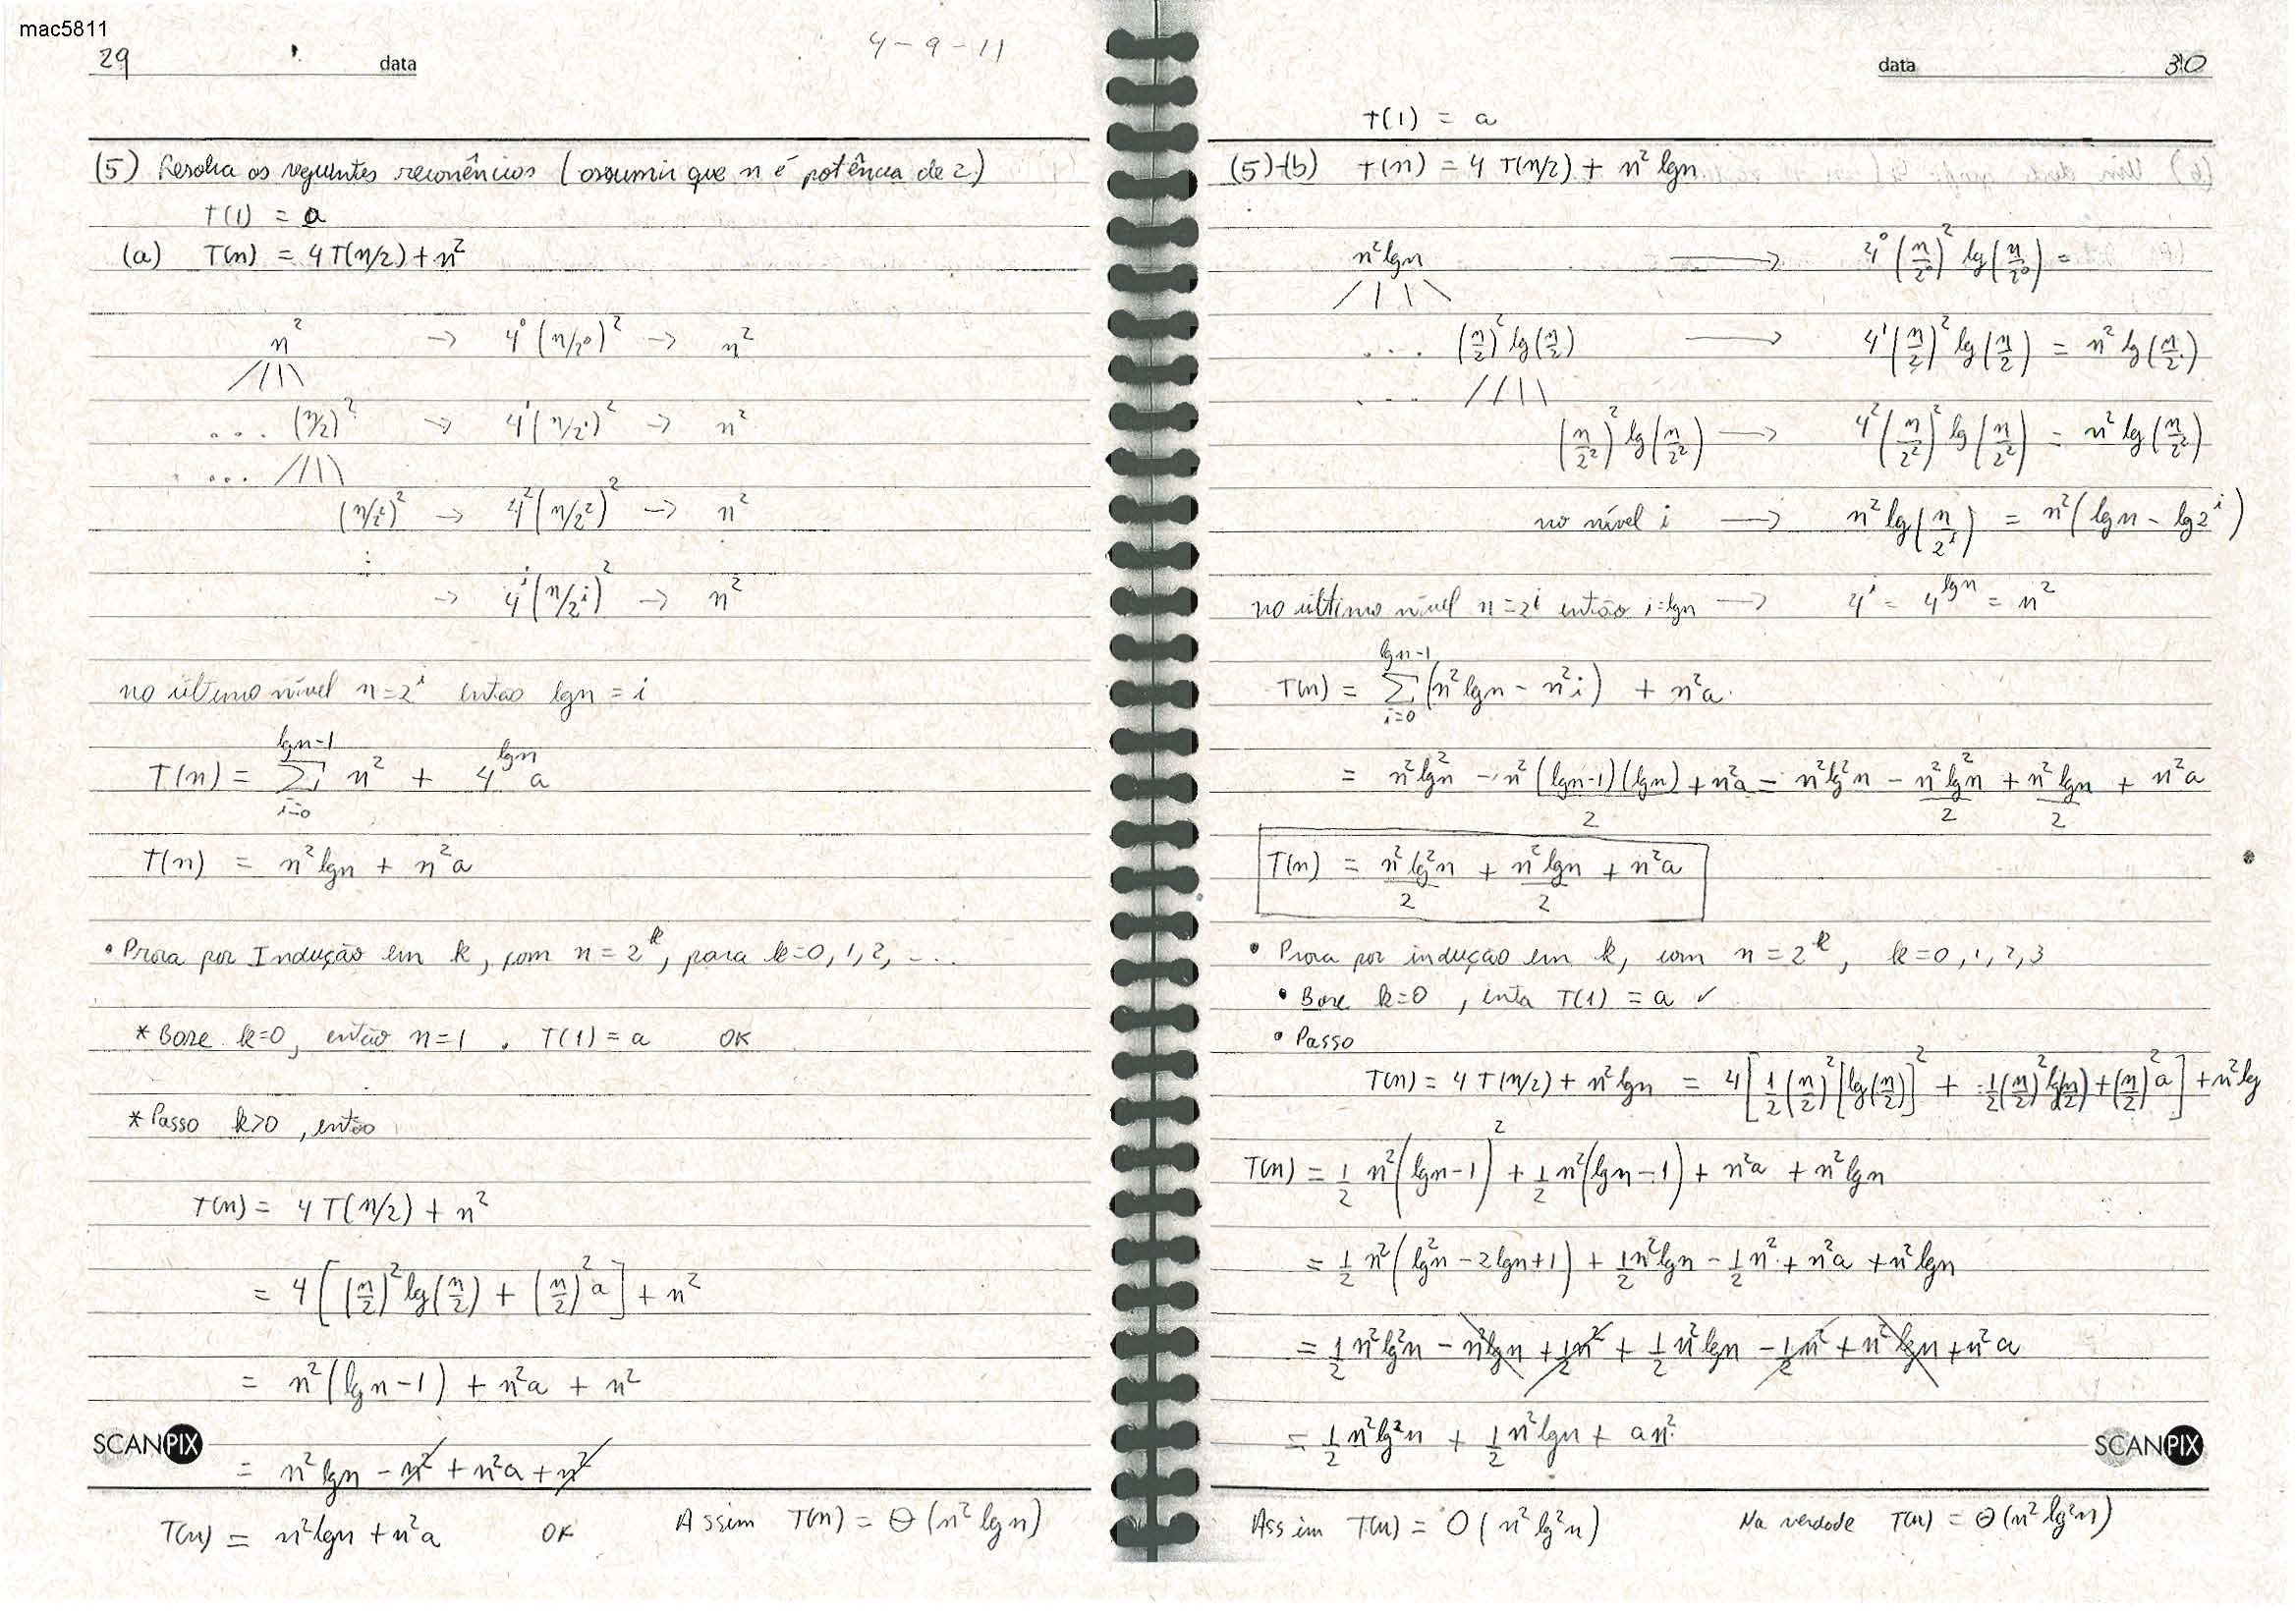 mac5811
29 data 4-9-11
(5) Resolva os seguintes recorrências (assumir que n é potência de 2)
T(1) = a
(a) T(n) = 4T(n/2) + n²
n² → 4⁰(n/2⁰)² → n²
... (n/2)² → 4¹(n/2¹)² → n²
... (n/2²)² → 4²(n/2²)² → n²
⋮
→ 4ⁱ(n/2ⁱ)² → n²
no último nível n=2ⁱ então lgn = i
T(n) = Σ_{i=0}^{lgn-1} n² + 4^{lgn} a
T(n) = n² lgn + n²a
• Prova por Indução em k, com n = 2^k, para k=0,1,2,...
* Base k=0, então n=1. T(1) = a OK
* Passo k>0, então
T(n) = 4T(n/2) + n²
= 4[(n/2)² lg(n/2) + (n/2)² a] + n²
= n²(lgn-1) + n²a + n²
SCANPIX
= n² lgn - n² + n²a + n²
T(n) = n² lgn + n²a OK Assim T(n) = Θ(n² lgn)
data 30
T(1) = a
(5)-(b) T(n) = 4T(n/2) + n² lgn
n² lgn → 4⁰(n/2⁰)² lg(n/2⁰) =
... (n/2)² lg(n/2) → 4¹(n/2)² lg(n/2) = n² lg(n/2)
... (n/2²)² lg(n/2²) → 4²(n/2²)² lg(n/2²) = n² lg(n/2²)
no nível i → n² lg(n/2ⁱ) = n²(lgn - lg2ⁱ)
no último nível n=2ⁱ então i=lgn → 4ⁱ = 4^{lgn} = n²
T(n) = Σ_{i=0}^{lgn-1} (n² lgn - n² i) + n²a
= n² lg²n - n² (lgn-1)(lgn)/2 + n²a = n² lg²n - n² lg²n/2 + n² lgn/2 + n²a
T(n) = n² lg²n/2 + n² lgn/2 + n²a
• Prova por indução em k, com n = 2^k, k=0,1,2,3
• Base k=0, enta T(1) = a ✓
• Passo
T(n) = 4T(n/2) + n² lgn = 4[1/2 (n/2)² [lg(n/2)]² + 1/2 (n/2)² lg(n/2) + (n/2)² a] + n² lg
T(n) = 1/2 n²(lgn-1)² + 1/2 n²(lgn-1) + n²a + n² lgn
= 1/2 n²(lg²n - 2lgn + 1) + 1/2 n² lgn - 1/2 n² + n²a + n² lgn
= 1/2 n² lg²n - n² lgn + 1/2 n² + 1/2 n² lgn - 1/2 n² + n² lgn + n²a
= 1/2 n² lg²n + 1/2 n² lgn + an²
SCANPIX
Assim T(n) = O(n² lg²n) Na verdade T(n) = Θ(n² lg²n)